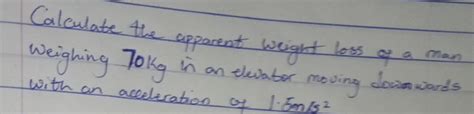 Calculate the apparent weight loss of a man
weighing 70kg in an elevator moving downwards
with an acceleration of 1.5m/s²